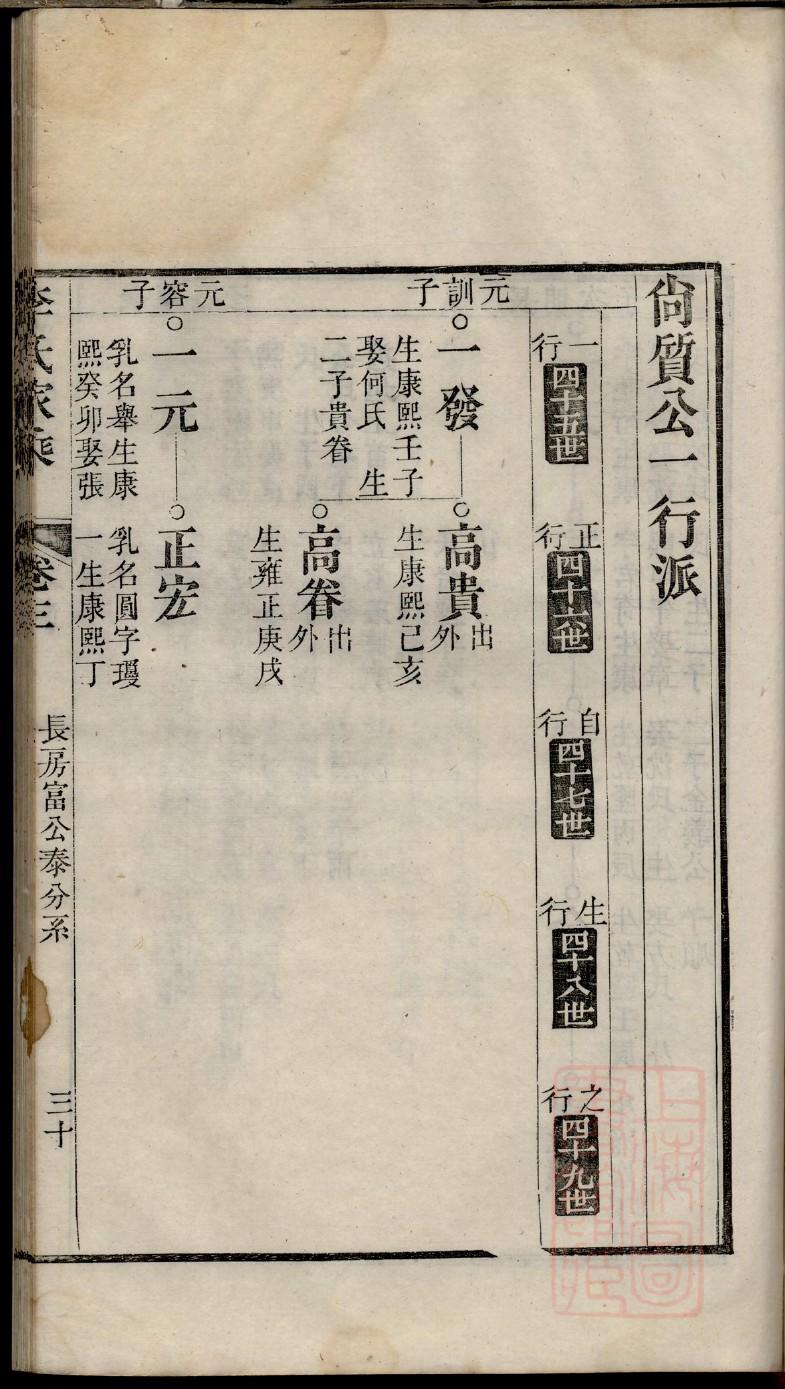 尙質公一行派
一行 四十五世
正行 四十六世
自行 四十七世
生行 四十八世
之行 四十九世
元訓子
一發
生康熙壬子
娶何氏 生
二子貴眷
高貴 出外
生康熙己亥
高眷 出外
生雍正庚戌
元容子
一元
乳名舉生康
熙癸卯娶張
正宏
乳名圓字璦
一生康熙丁
李氏家乘 卷三 長房富公泰分系 三十